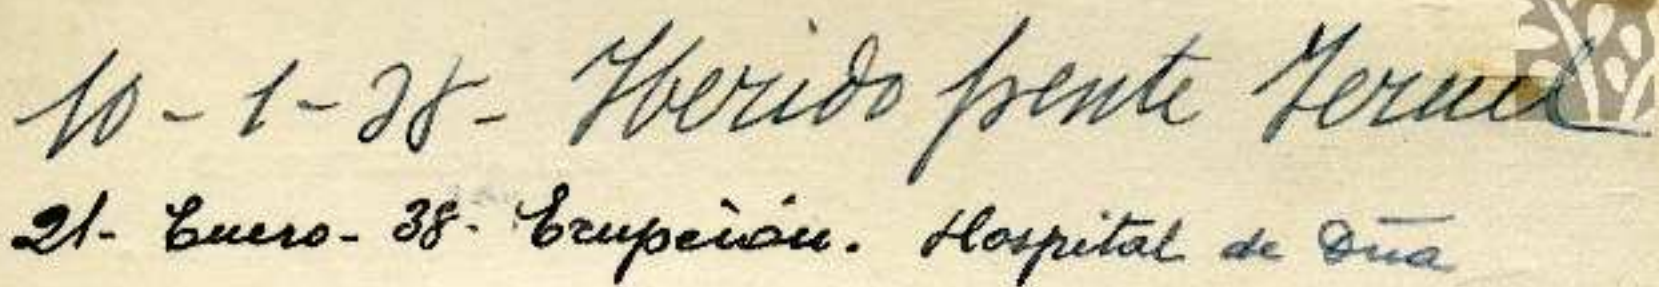 10-1-38- Herido frente Teruel
21- Enero- 38- Erupción. Hospital de Oña